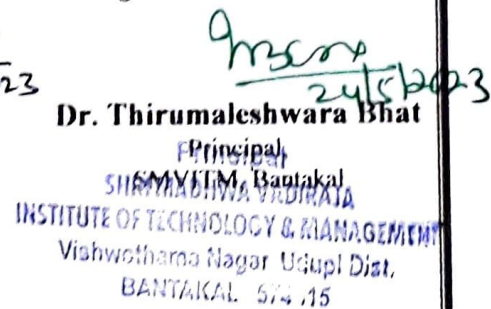 23
24/5/2023
Dr. Thirumaleshwara Bhat
Principal
Principal
SMVITM, Bantakal
SHRI MADHWA VADIRAJA
INSTITUTE OF TECHNOLOGY & MANAGEMENT
Vishwothama Nagar Udupi Dist,
BANTAKAL 574 115